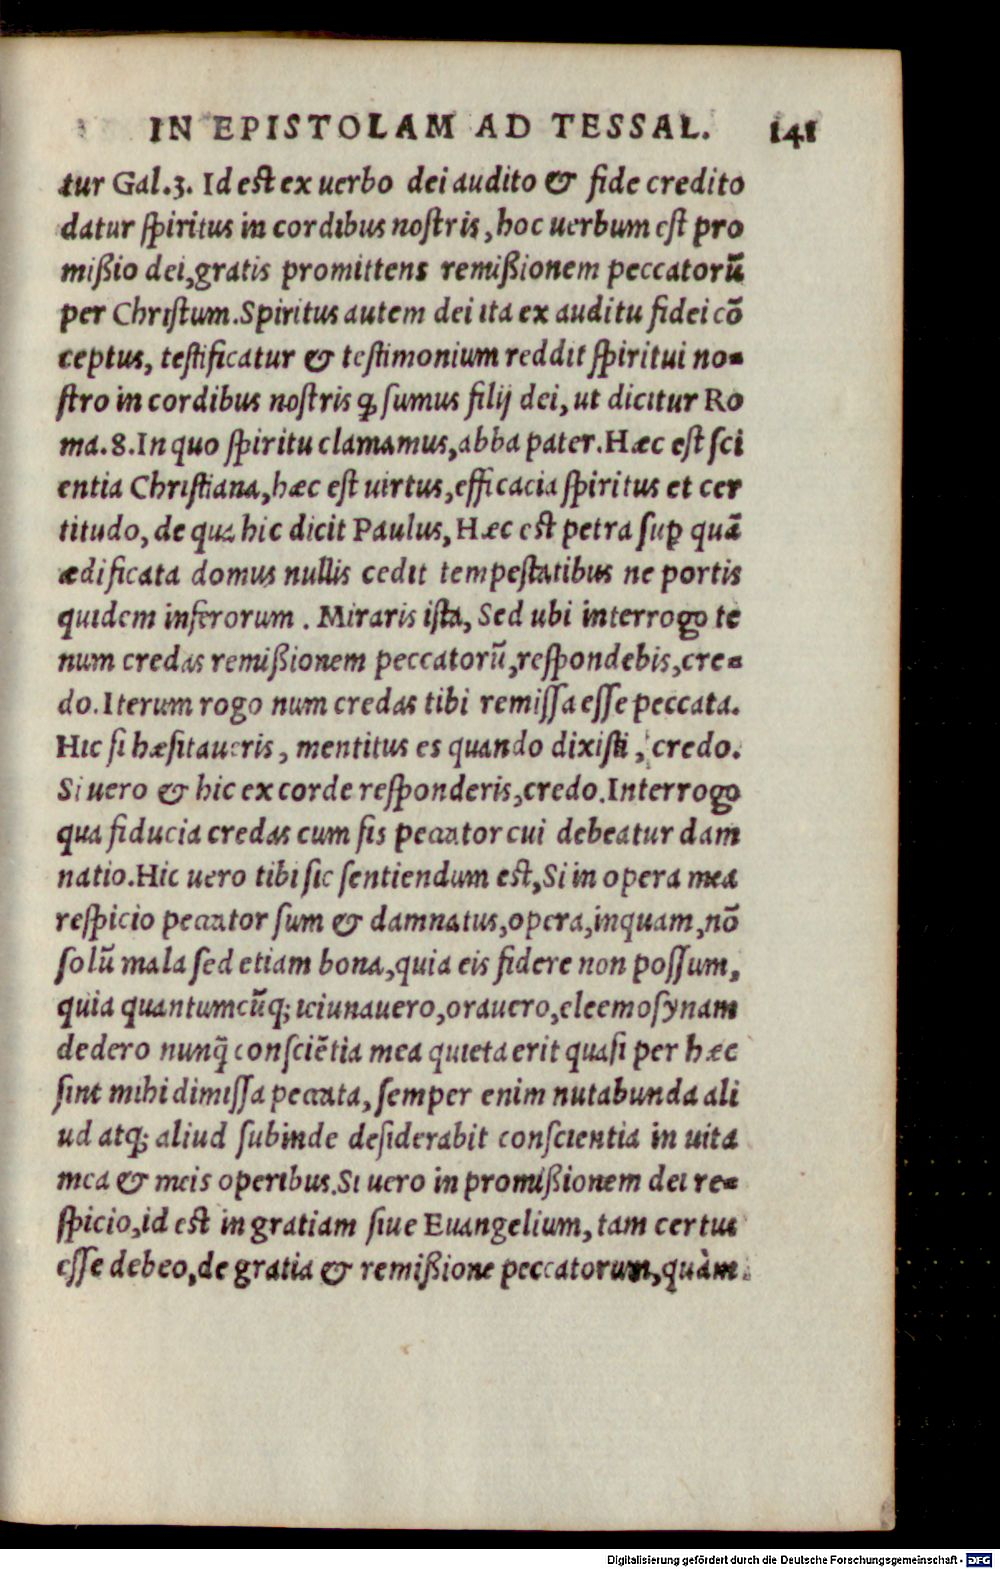 IN EPISTOLAM AD TESSAL. 141
tur Gal.3. Id est ex uerbo dei audito & fide credito
datur spiritus in cordibus nostris, hoc uerbum est pro
mißio dei, gratis promittens remißionem peccatorũ
per Christum. Spiritus autem dei ita ex auditu fidei cõ
ceptus, testificatur & testimonium reddit spiritui no-
stro in cordibus nostris ꝙ sumus filij dei, ut dicitur Ro
ma. 8. In quo spiritu clamamus, abba pater. Hæc est sci
entia Christiana, hæc est uirtus, efficacia spiritus et cer
titudo, de qua hic dicit Paulus, Hæc est petra suꝑ quã
ædificata domus nullis cedit tempestatibus ne portis
quidem inferorum . Miraris ista, Sed ubi interrogo te
num credas remißionem peccatorũ, respondebis, cre-
do. Iterum rogo num credas tibi remissa esse peccata.
Hic si hæsitaueris, mentitus es quando dixisti, credo.
Si uero & hic ex corde responderis, credo. Interrogo
qua fiducia credas cum sis peccator cui debeatur dam
natio. Hic uero tibi sic sentiendum est, Si in opera mea
respicio peccator sum & damnatus, opera, inquam, nõ
solũ mala sed etiam bona, quia eis fidere non possum,
quia quantumcũq; ieiunauero, orauero, eleemosynam
dedero nunq̃ consciẽtia mea quieta erit quasi per hæc
sint mihi dimissa peccata, semper enim nutabunda ali
ud atq; aliud subinde desiderabit conscientia in uita
mea & meis operibus. Si uero in promißionem dei re-
spicio, id est in gratiam siue Euangelium, tam certus
esse debeo, de gratia & remißione peccatorum, quàm
Digitalisierung gefördert durch die Deutsche Forschungsgemeinschaft - DFG